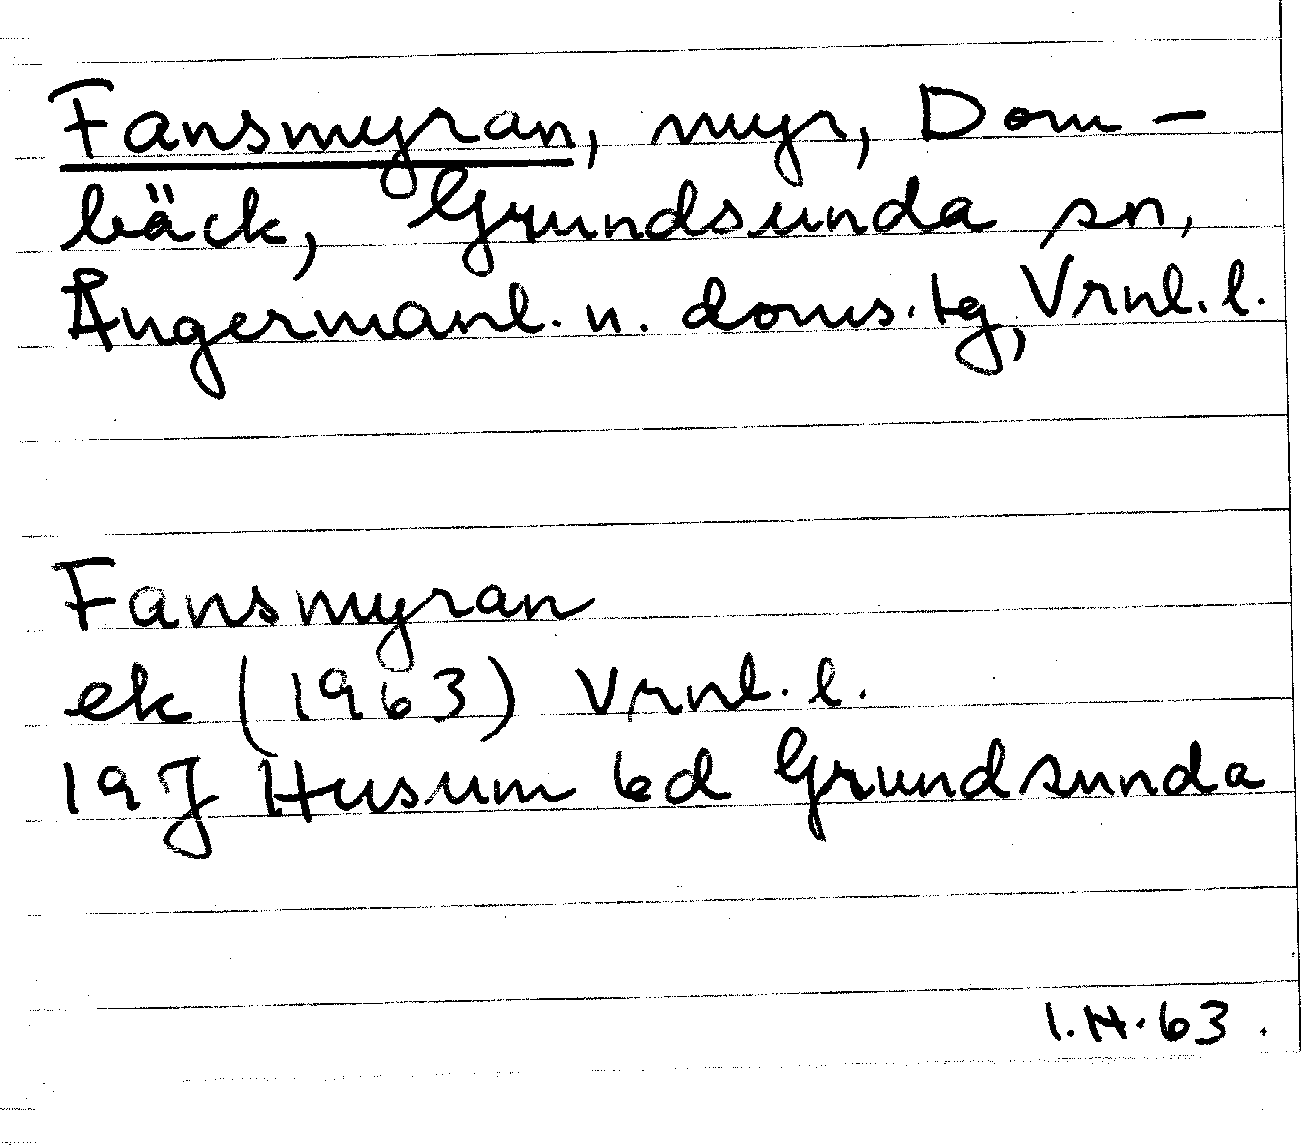 Fansmyran, myr, Dom-
bäck, Grundsunda sn,
Ångermanl. n. doms. tg, Vrnl. l.
Fansmyran
ek (1963) Vrnl. l.
19J Husum bd Grundsunda
I.H. 63.